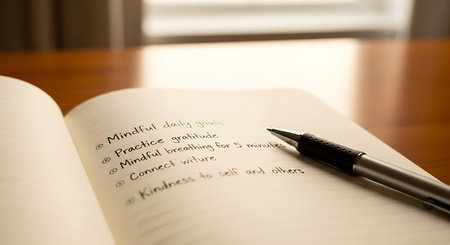 Mindful daily goals
Practice gratitude
Mindful breathing for 5 minutes
Connect witure
Kindness to self and others